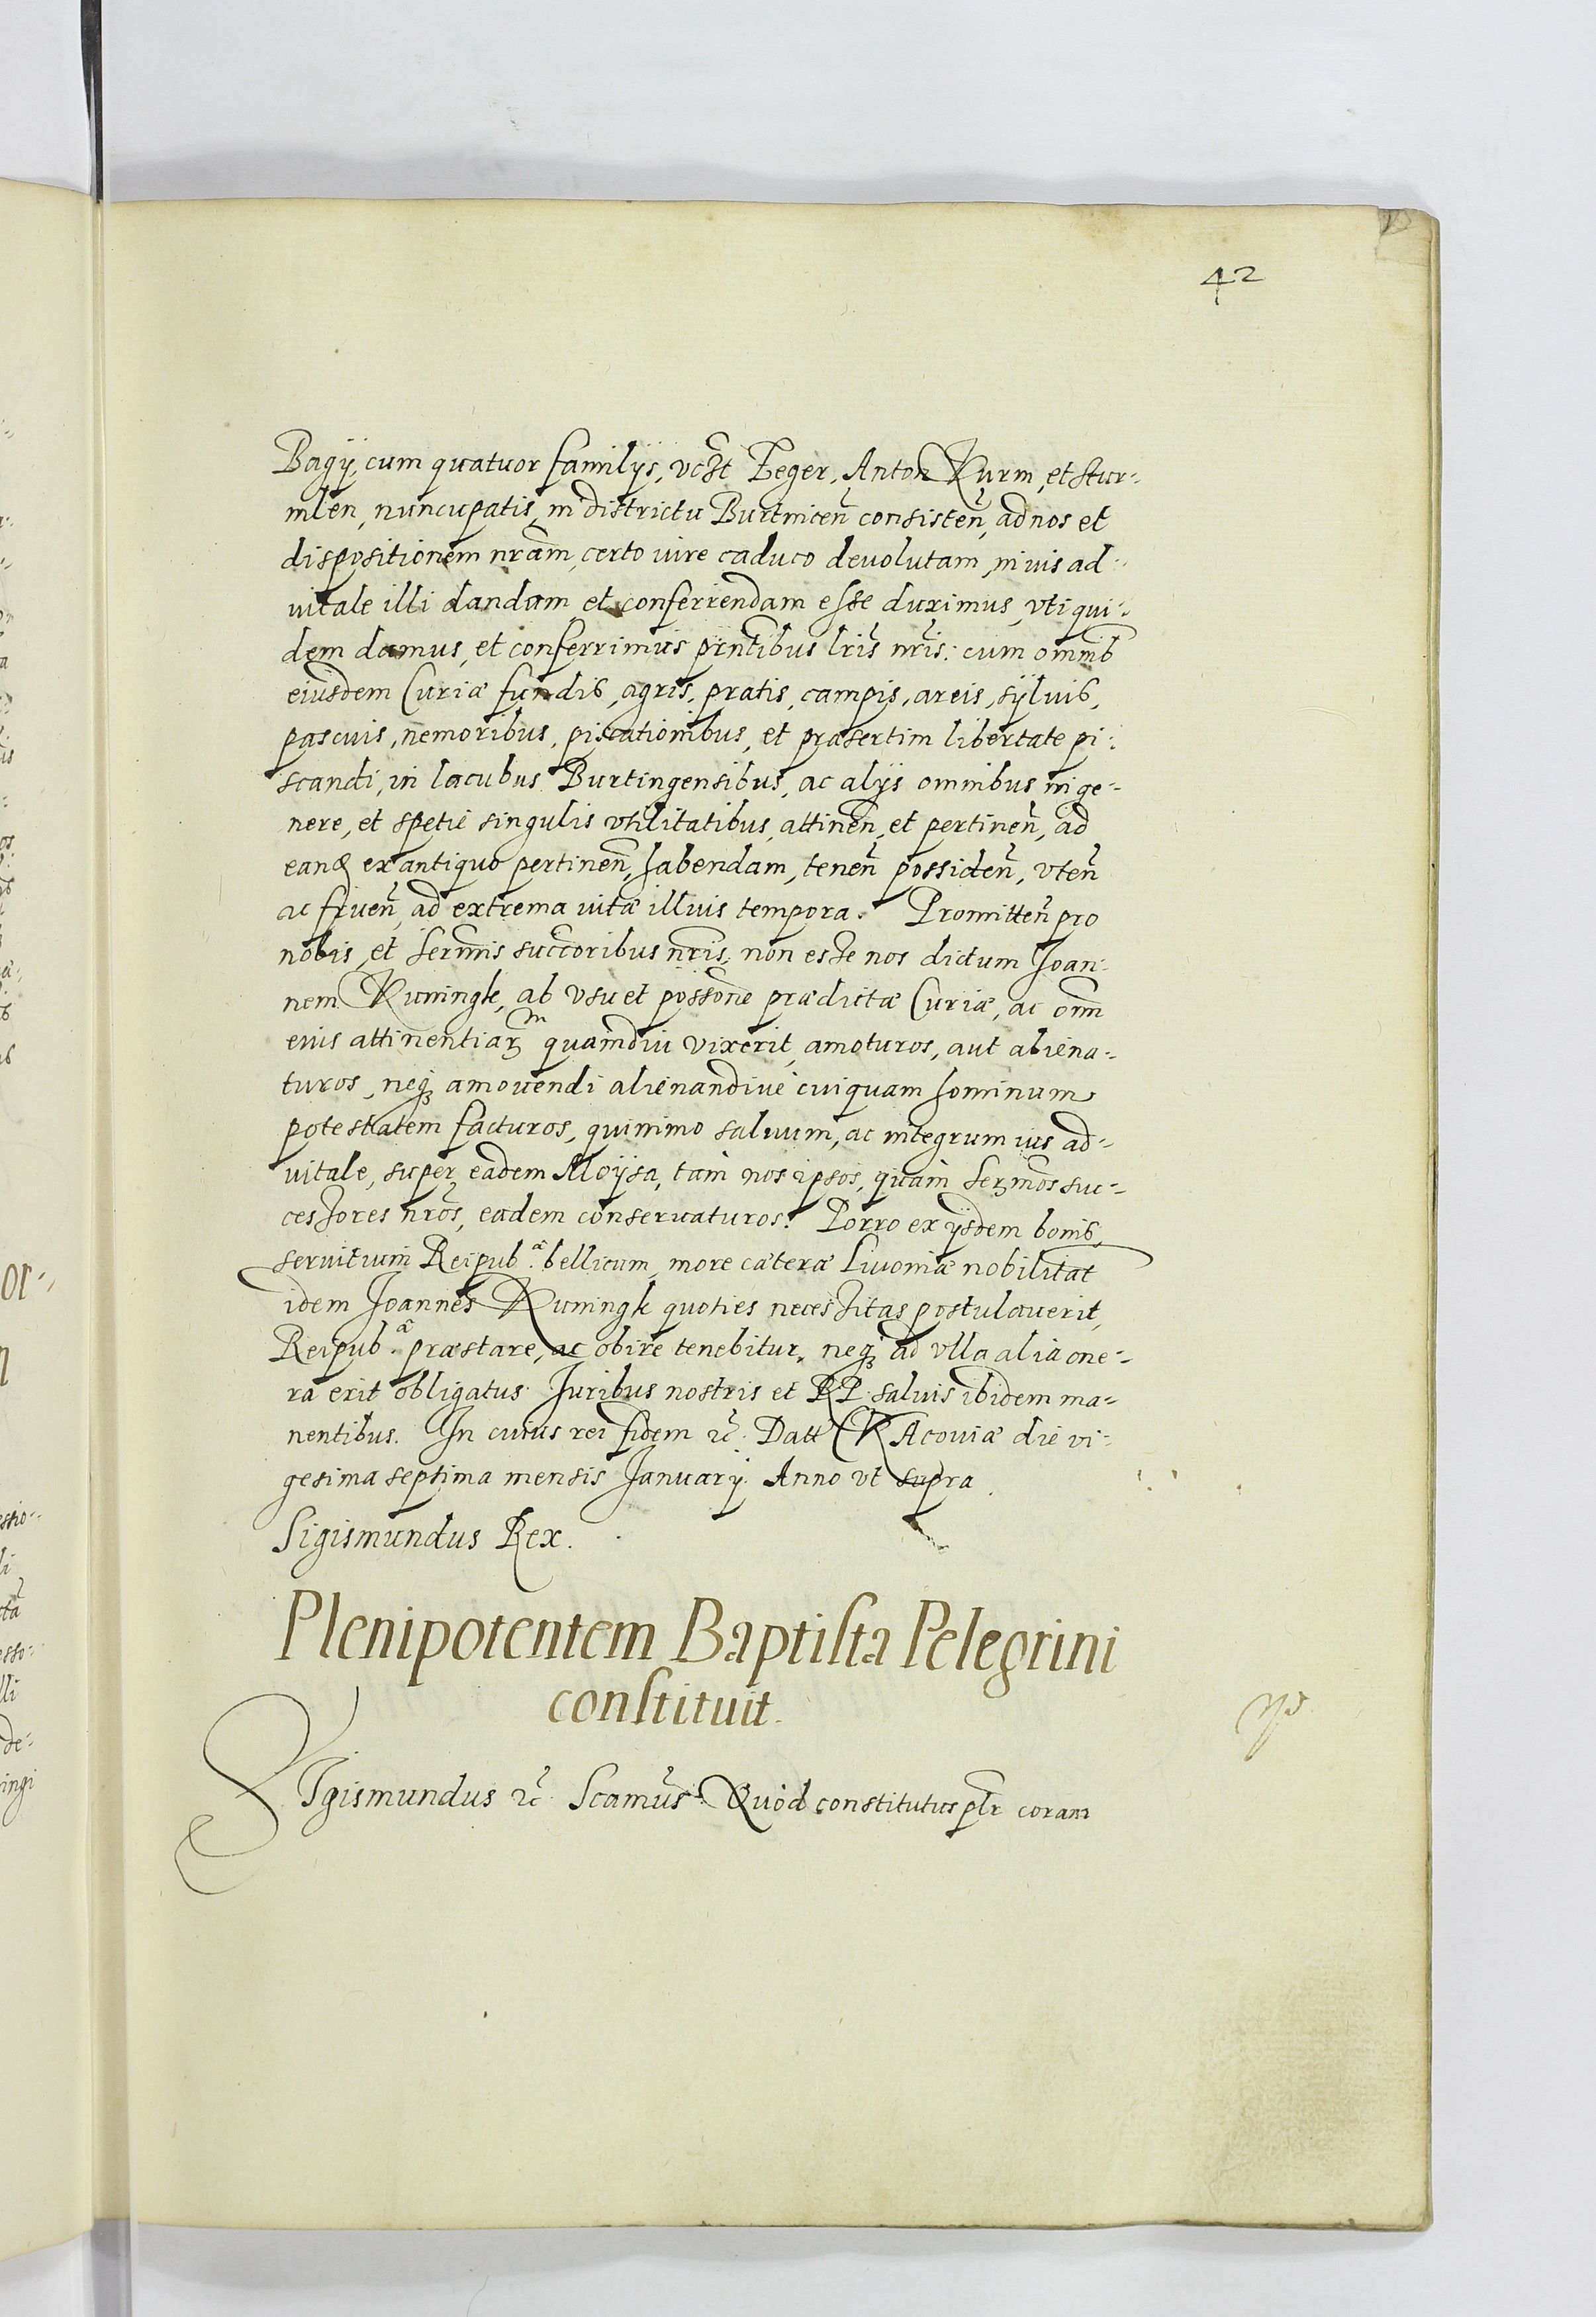 42
Bagÿ, cum quatuor familÿs, včzt Peger, Anton Kurm, et Stur-
mlen, nuncupatis, in districtu Burtniceñ consisteñ, ad nos et
dispositionem nrãm, certo iure caduco devolutam, in ius ad-
vitale illi dandam et conferrendam esse duximus, vti qui-
dem damus, et conferrimus pñtibus lris nris: cum omnib
eiusdem Curiæ fundis, agris, pratis, campis, areis, sÿlvis,
pascuis, nemoribus, piscationibus, et præsertim libertate pi-
scandi, in lacubus Burtingensibus, ac alÿs omnibus in ge-
nere, et spetie singulis vtilitatibus, attineñ, et pertineñ, ad
eand ex antiquo pertineñ, habendam, teneñ possideñ, vteñ
ac frueñ, ad extrema vitæ illius tempora. Promitteñ pro
nobis, et Sermis succoribus nris, non esse nos dictum Joan-
nem Kuningk, ab vsu et possone prædictæ Curiæ, ac omm
eius attinentiarum quamdiu vixerit, amoturos, aut aliena-
turos, neq amovendi alienandive cuiquam hominum
potestatem facturos, quinimo saluum, ac integrum ius ad-
vitale, super eadem Moÿsa, tam nos ipsos, quam Sermos suc-
cessores nros, eadem conservaturos. Porro ex ÿsdem bonis,
servitium Reipub.æ bellicum, more cæteræ Livoniæ nobilitat
idem Joannes Kuningk quoties necessitas postulaverit,
Reipub.æ præstare, ac obire tenebitur, neq ad vlla alia one-
ra erit obligatus. Juribus nostris et RP. salvis ibidem ma-
nentibus. In cuius rei fidem &c. Datt CRAcoviæ die vi-
gesima septima mensis Januarÿ. Anno vt supra.
Sigismundus Rex.
Plenipotentem Baptista Pelegrini
constituit.
SIgismundus &c. Scamus. Quod constitutus plr coram